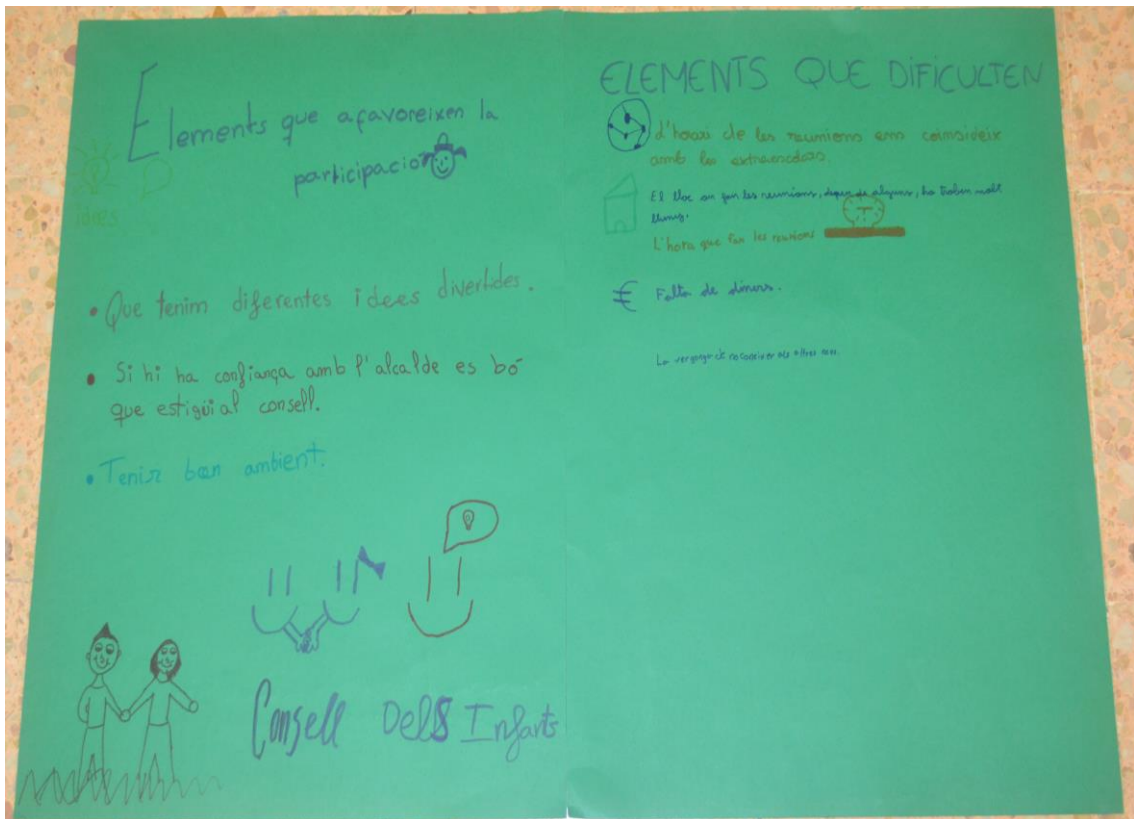 Elements que afavoreixen la
participacio
idees
• Que tenim diferentes idees divertides.
• Si hi ha confiança amb l'alcalde es bó
que estigüi al consell.
• Tenir bon ambient.
Consell Dels Infants
ELEMENTS QUE DIFICULTEN
d'horari de les reunions ens coinsideix
amb les extraescolars.
El lloc on fan les reunions, depen de alguns, ho troben molt
lluny.
L'hora que fan les reunions
€ Falta de diners.
La vergonya de no coneixer als altres nens.